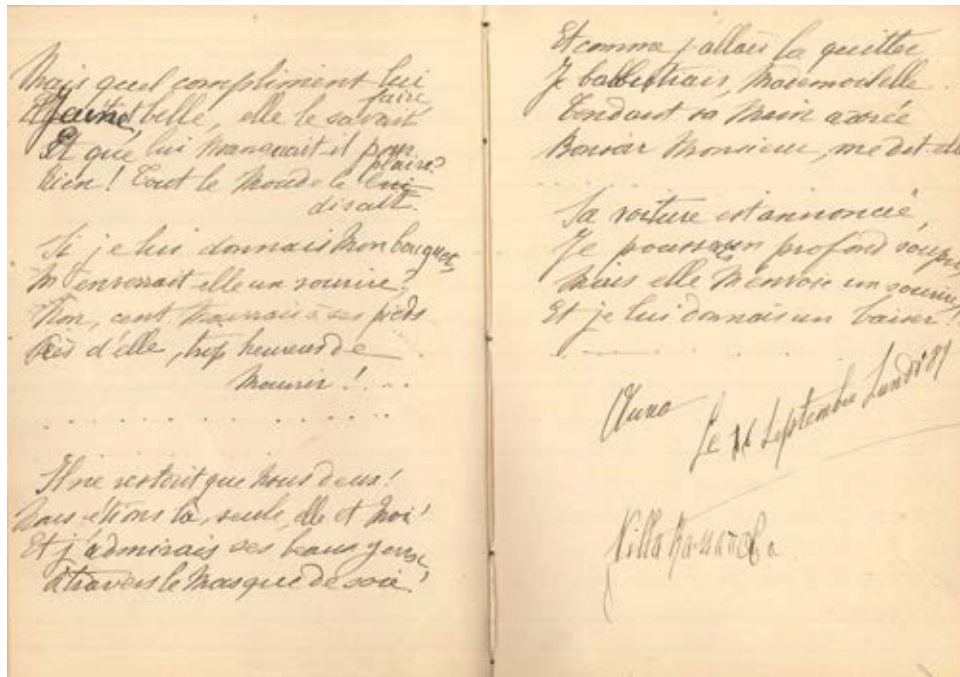 Mais quel compliment lui
faire
Jeune et belle, elle le savait
Et que lui manquait il pour
plaire?
Rien! Tout le Monde le lui
disait.
Si je lui donnais Mon bouquet,
M'enverrait elle un sourire?
Non, cent mourrais à ses pieds
Près d'elle, trop heureux de
Mourir!...
Il ne restait que Nous deux!
Nous étions là, seuls, elle et Moi!
Et j'admirais ses beaux yeux,
à travers le Masque de soie!
Et comme j'allais la quitter
Je balbutiais, Mademoiselle...
Tendant sa Main adorée
Bonsoir Monsieur, me dit elle
Sa voiture est annoncée,
Je poussais un profond soupir,
Mais elle M'envoie un sourire,
Et je lui donnais un baiser!
Le Septembre Lundi 87
Villa